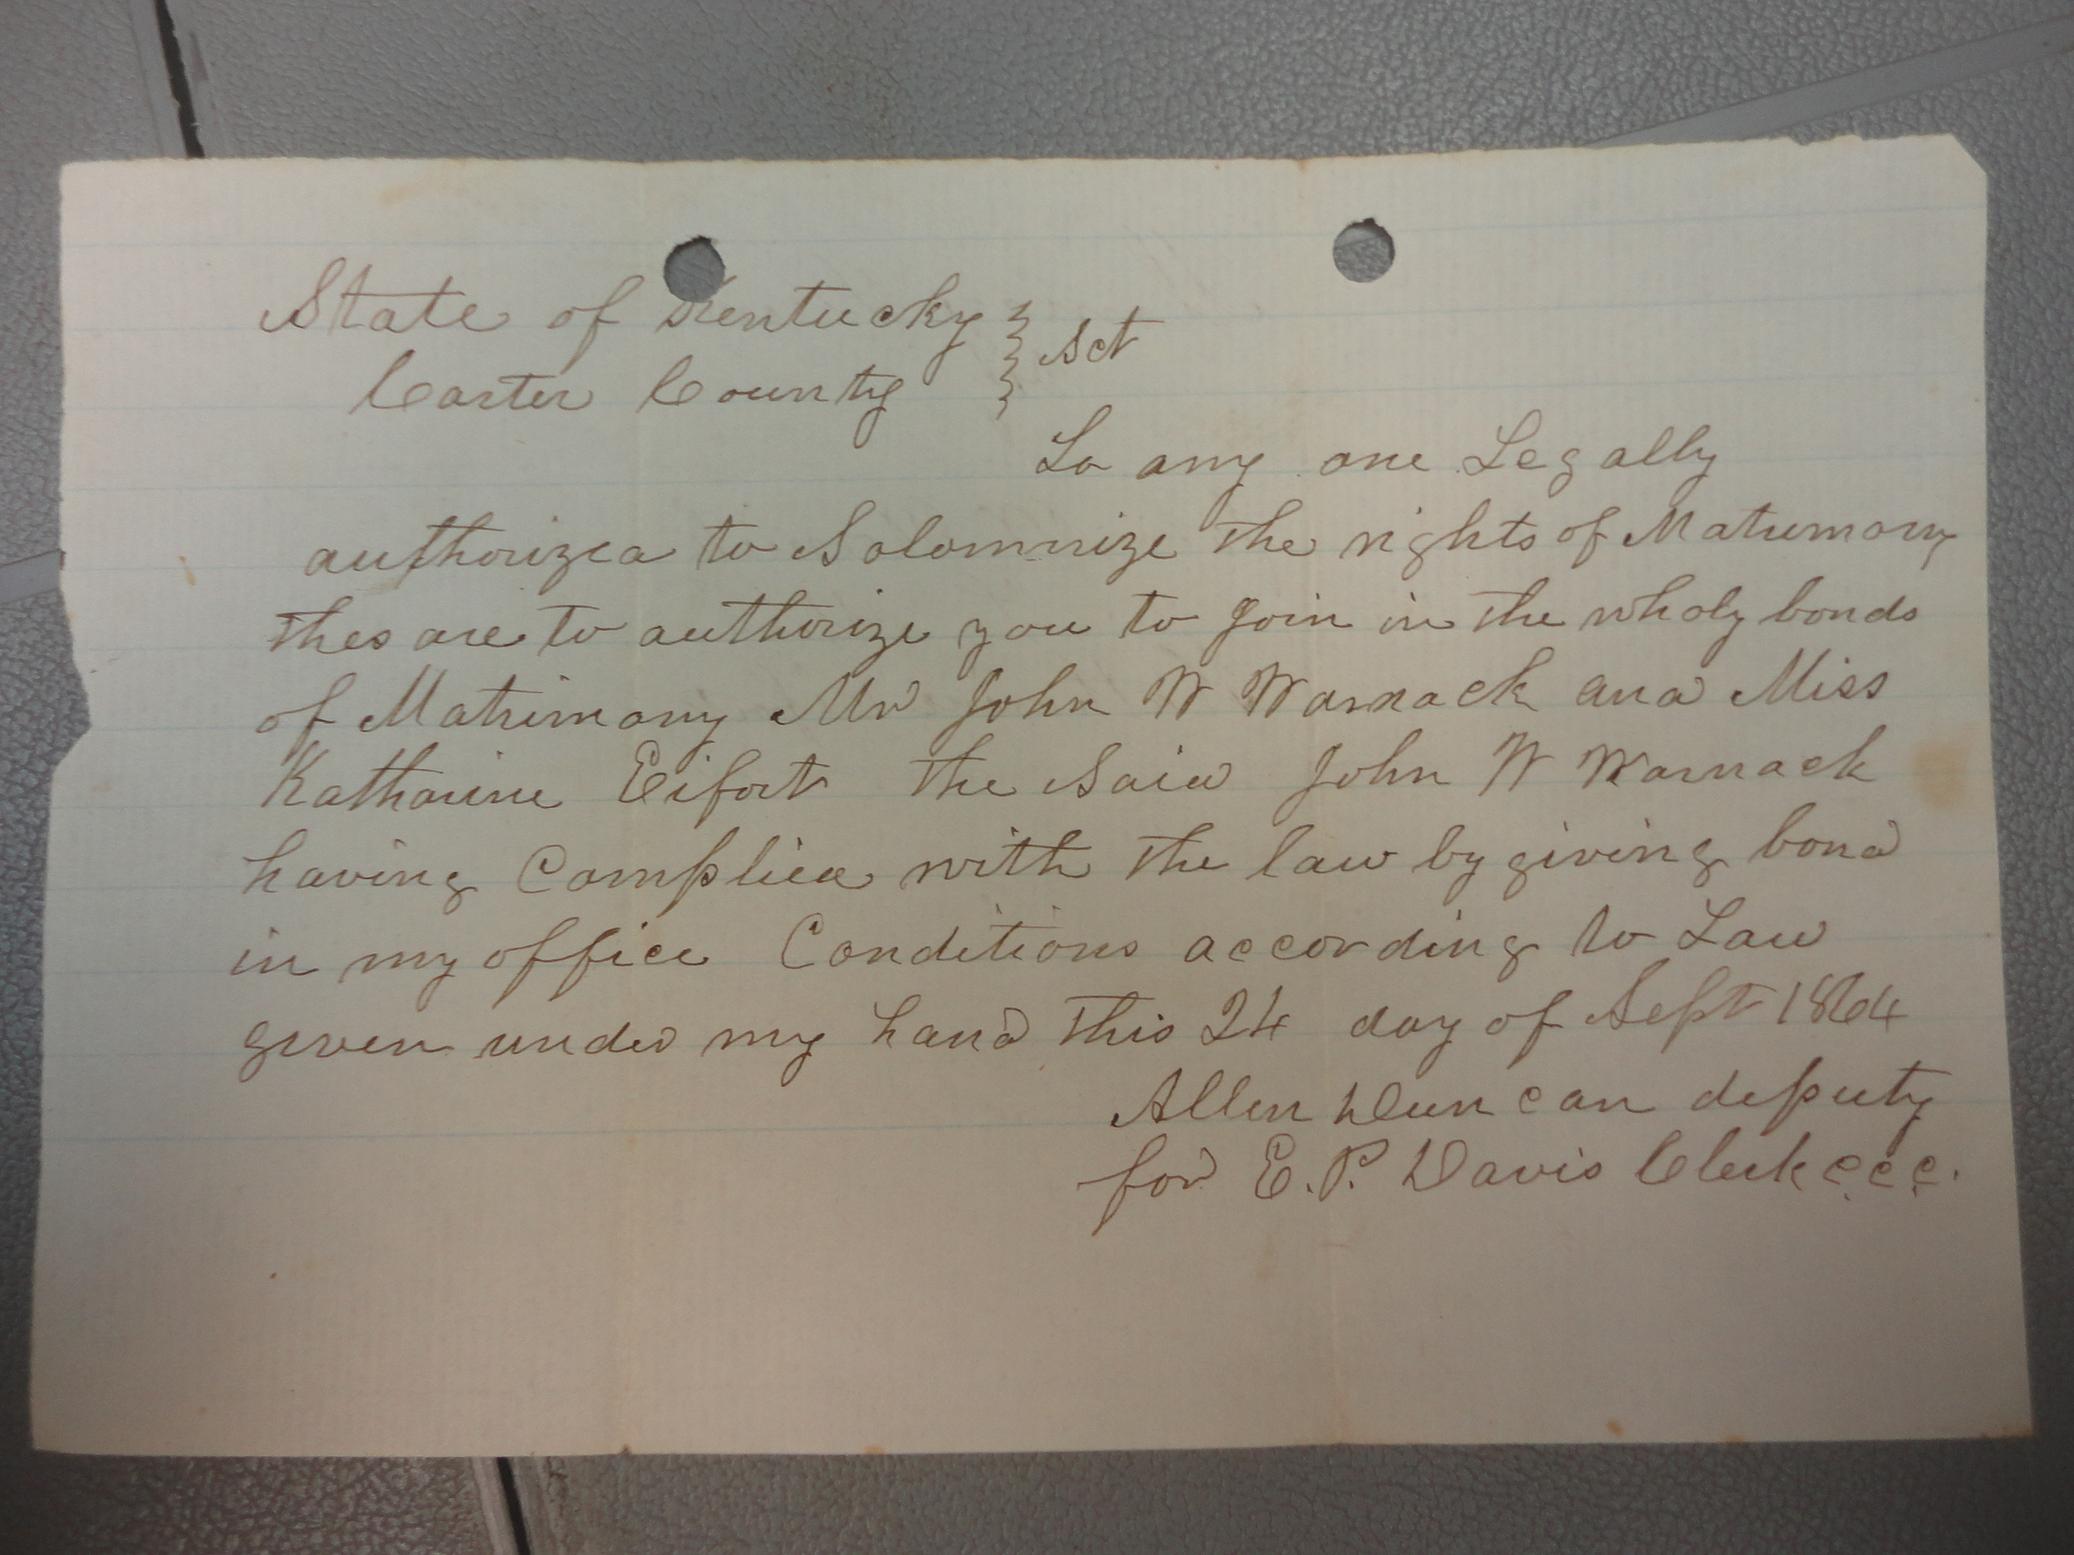 State of Kentucky } Sct
Carter County
To any one Legally
authorized to Solomnize the rights of Matrimony
thes are to authorize you to Join in the wholy bonds
of Matrimony Mr John W Warnack and Miss
Katharine Eifort the Said John W Warnack
having Complied with the law by giving bond
in my office Conditions according to Law
given under my hand this 24 day of Sept 1864
Allen Duncan deputy
for E. P. Davis Clerk C.C.C.